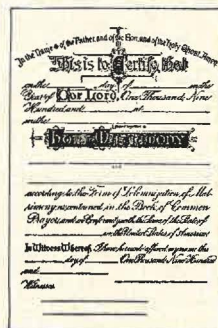 In the Name of the Father, and of the Son, and of the Holy Ghost, Amen.
This is to Certify, that
on the day of in the
Year of Our Lord, One Thousand Nine
Hundred and at
in the
Holy Matrimony
and
according to the Form of Solemnization of Mat-
rimony as contained in the Book of Common
Prayer and in Conformity with the Laws of the State of
in the United States of America
In Witness Whereof, I have hereunto affixed my name this
day of One Thousand Nine Hundred
and
Witnesses